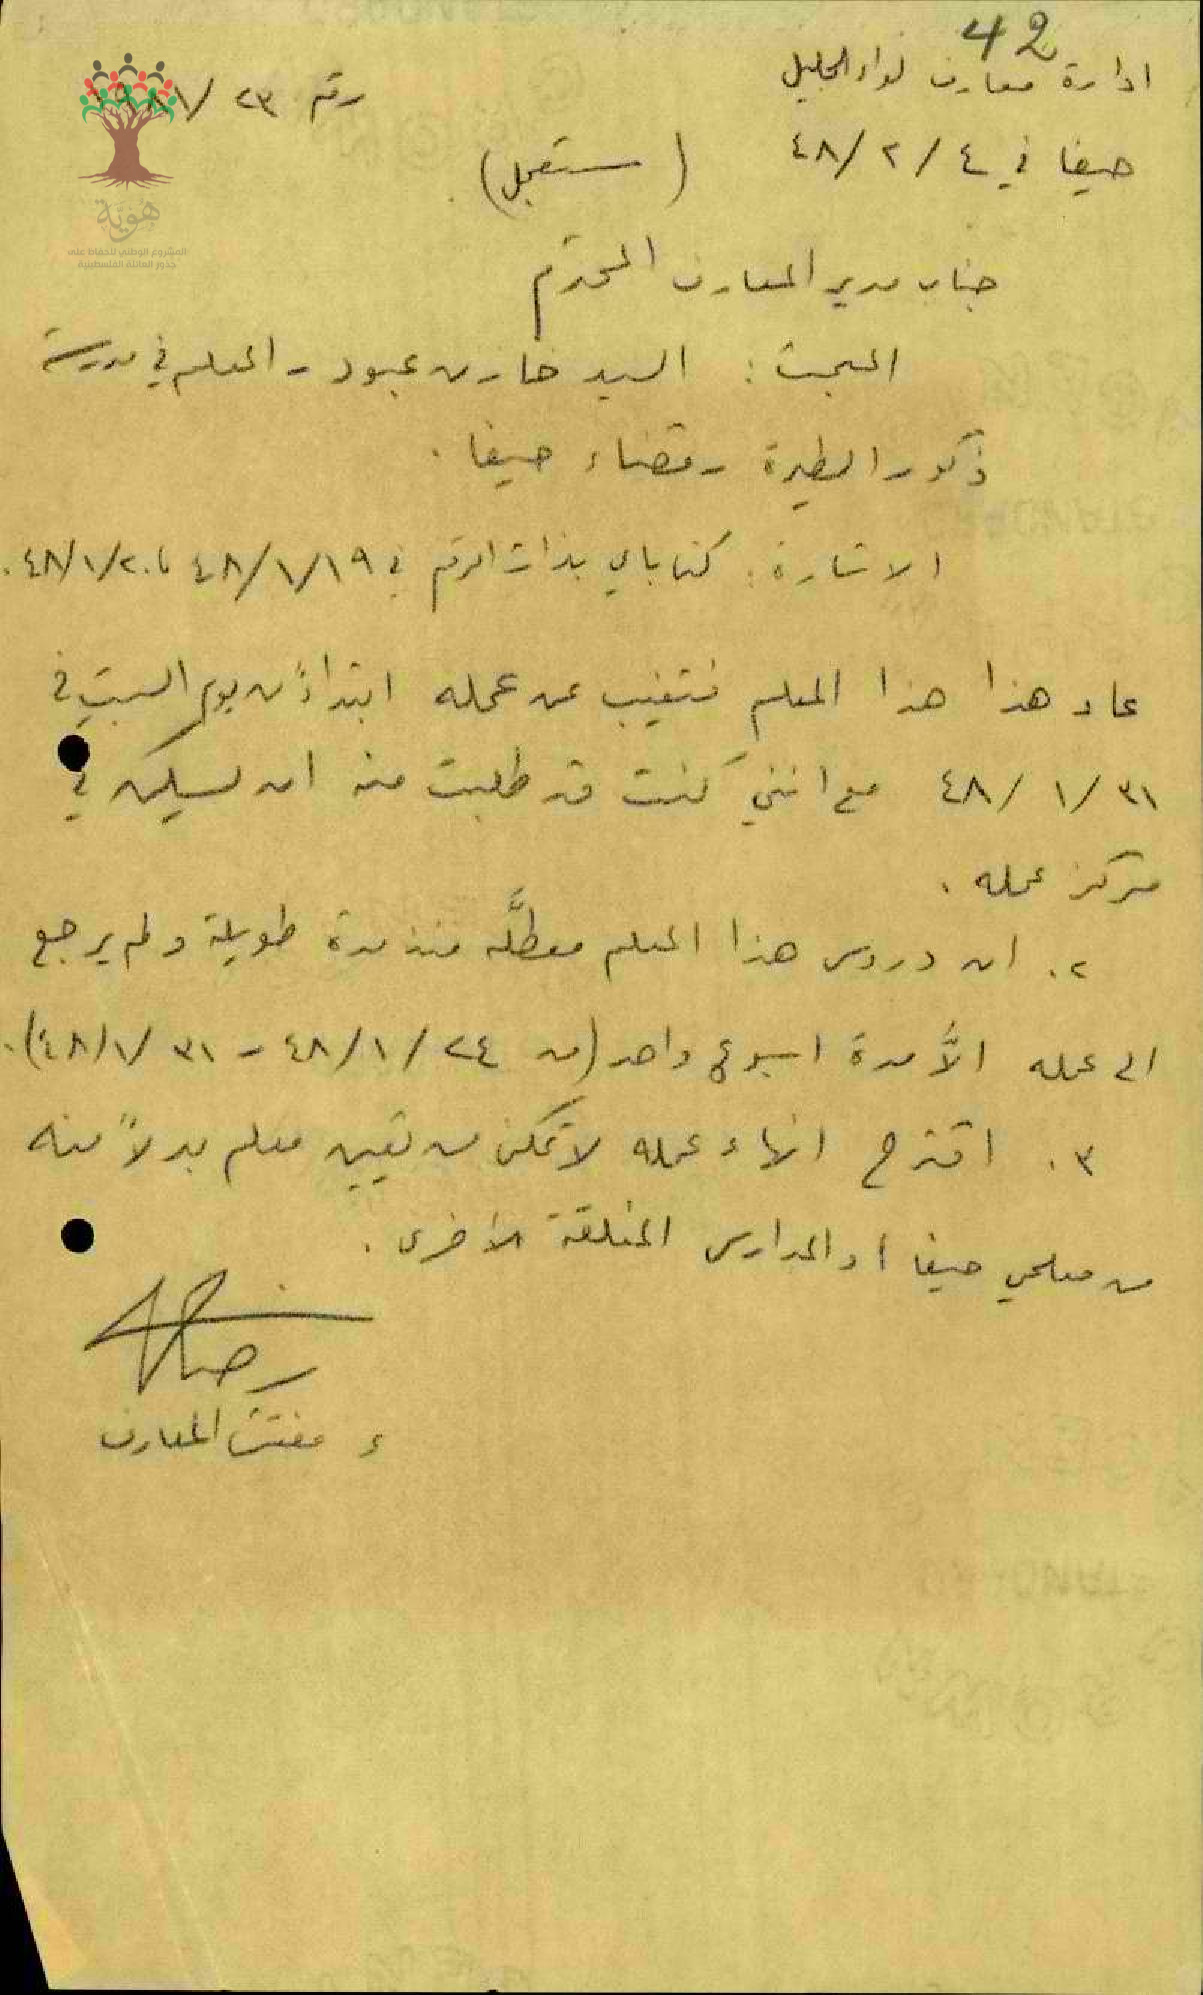 42
ادارة معارف لواء الجليل
رقم ٢٣/
حيفا في ٤/٢/٤٨ (مستعجل)
هوية
المشروع الوطني للحفاظ على
جذور العائلة الفلسطينية
جناب مدير المعارف المحترم
المبحث : السيد خازن عبود - المعلم في مدرسة
ذكور الطيرة - قضاء حيفا .
الاشارة : كتاباي بذات الرقم في ١٩/١/٤٨ و ٢٠/١/٤٨ .
عاد هذا هذا المعلم فتغيب عن عمله ابتداءً من يوم السبت في
٣١/١/٤٨ مع انني كنت قد طلبت منه ان يسكن في
مركز عمله .
٢. ان دروس هذا المعلم معطلَّه منذ مدة طويلة ولم يرجع
الى عمله الاَّ مدة اسبوع واحد (من ٢٤/١/٤٨ - ٣١/١/٤٨) .
٣. اقترح انهاء عمله لاتمكن من تعيين معلم بدلاً منه
من معلمي حيفا او المدارس المغلقة الاخرى .
ء مفتش المعارف